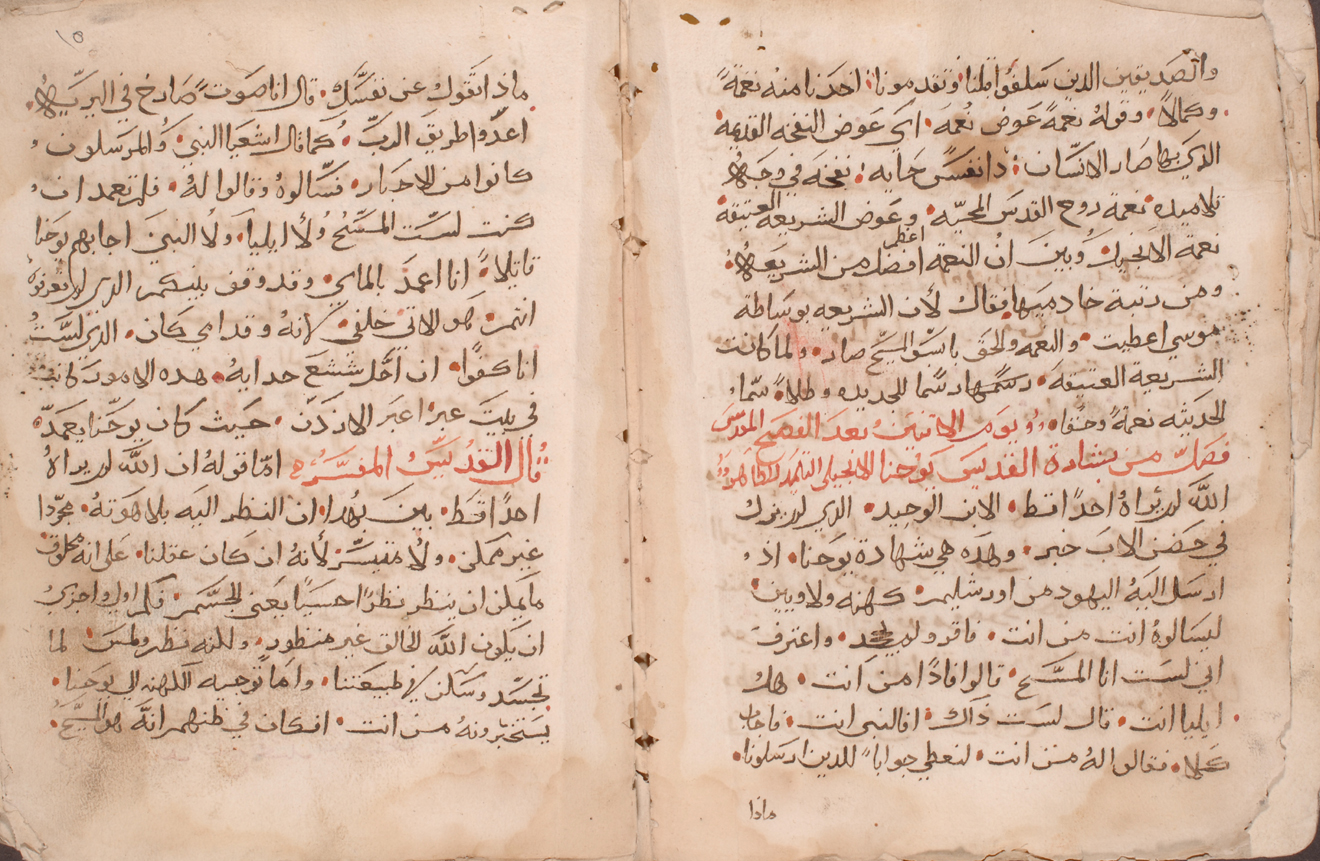 والصديقين الدين سلفوا قبلنا وتقدمونا٠ اخدنا منه نعمةً
وكمالاً٠ وقوله نعمةً عوض نعمه٠ اي عوض النفخه القديمه
الدي بها صار الانسان٠ دا نفسً حيايه٠ نفخه في وجه
تلاميده نعمة روح القدس المحييه٠ وعوض الشريعه العتيقة
نعمة الانجيل٠ وبين ان النعمة اعظم افضل من الشريعه٠
ومن رتبة خادميها٠ فقال لأن الشريعه بوساطة
موسي اعطيت٠ والنعمه والحق باسوع المسيح صار٠ ولما كانت
الشريعه العتيقة٠ رسمها رسما للجديده وظلا٠ سما
الحديثه نعمةً وحقا٠ يوم الاتنين بعد الفصح المقدس
فصل من بشارة القديس يوحنا الانجيلي التلميد الطاهر
الله لم يراهُ احدًا قط٠ الابن الوحيد٠ الدي لم يزل
في حضن الاب خبر٠ وهده هي شهادة يوحنا٠ اد
ارسل اليهُ اليهود من اورشليم٠ كهنه ولاويين
ليسالوهُ انت من انت٠ فاقر ولم يجحد٠ واعترف
اني لست انا المسيح٠ قالوا فادًا من انت٠ هل
ايليا انت٠ قال لست داك٠ افالنبي انت٠ فاجاب
كلا٠ فقالوا لهُ من انت٠ لنعطي جواباً للدين ارسلونا٠
مادا
١٥
مادا تقول عن نفسك٠ قال انا صوت صارخ في البريه٠
اعدوا طريق الرب٠ كما قال اشعيا النبي٠ والمرسلون
كانوا من الاحبار٠ فسالوهُ وقالوا لهُ٠ فلم تعمد ان
كنت لست المسيح ولا ايليا٠ ولا النبي اجابهم يوحنا
قايلاً٠ انا اعمد بالماي٠ وقد وقف بينكم الدي لم تعرفوه
انتم٠ هو الاتي خلفي٠ لانهُ وقدامي كان٠ الدي لستُ
انا كفوًا٠ ان احل شسع حدايهُ٠ هده الامور كانت
في بيت عبرا عبر الاردن٠ حيث كان يوحنا يعمد٠
قال القديس المفسر امّا قولهُ ان الله لم يراهُ
احدًا قط٠ بين بهدا٠ ان النظر اليه بلاهوتهُ٠ مجردا
غير ممكن٠ ولا متيسر٠ لأنهُ ان كان عقلنا٠ علي انه مخلوق
ما يمكن ان ينظر نظرًا حسيًا يعني للجسم٠ فكم اولي واحري
ان يكون الله الخالق غير منظور٠ ولكنه نظر ولمس لما
تجسد وسكن في طبيعتنا٠ واما توجيه الكهنه الي يوحنا٠
يستخبرونهُ من انت٠ افكان في ظنهم انهُ هو المسيح٠